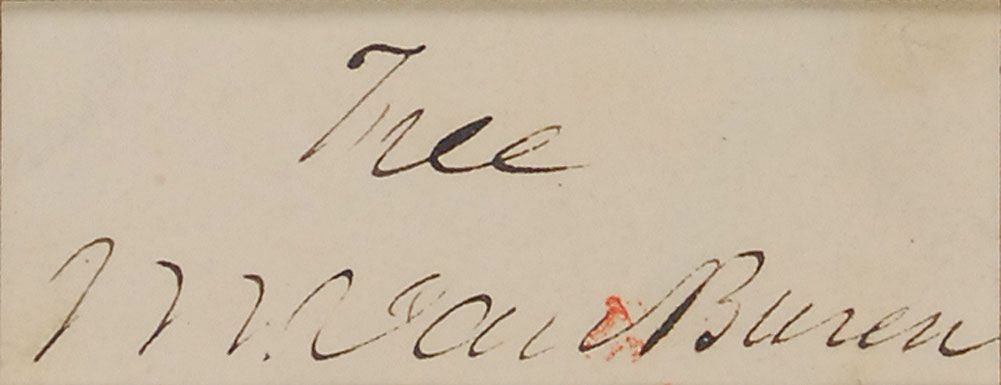 Free
M. Van Buren